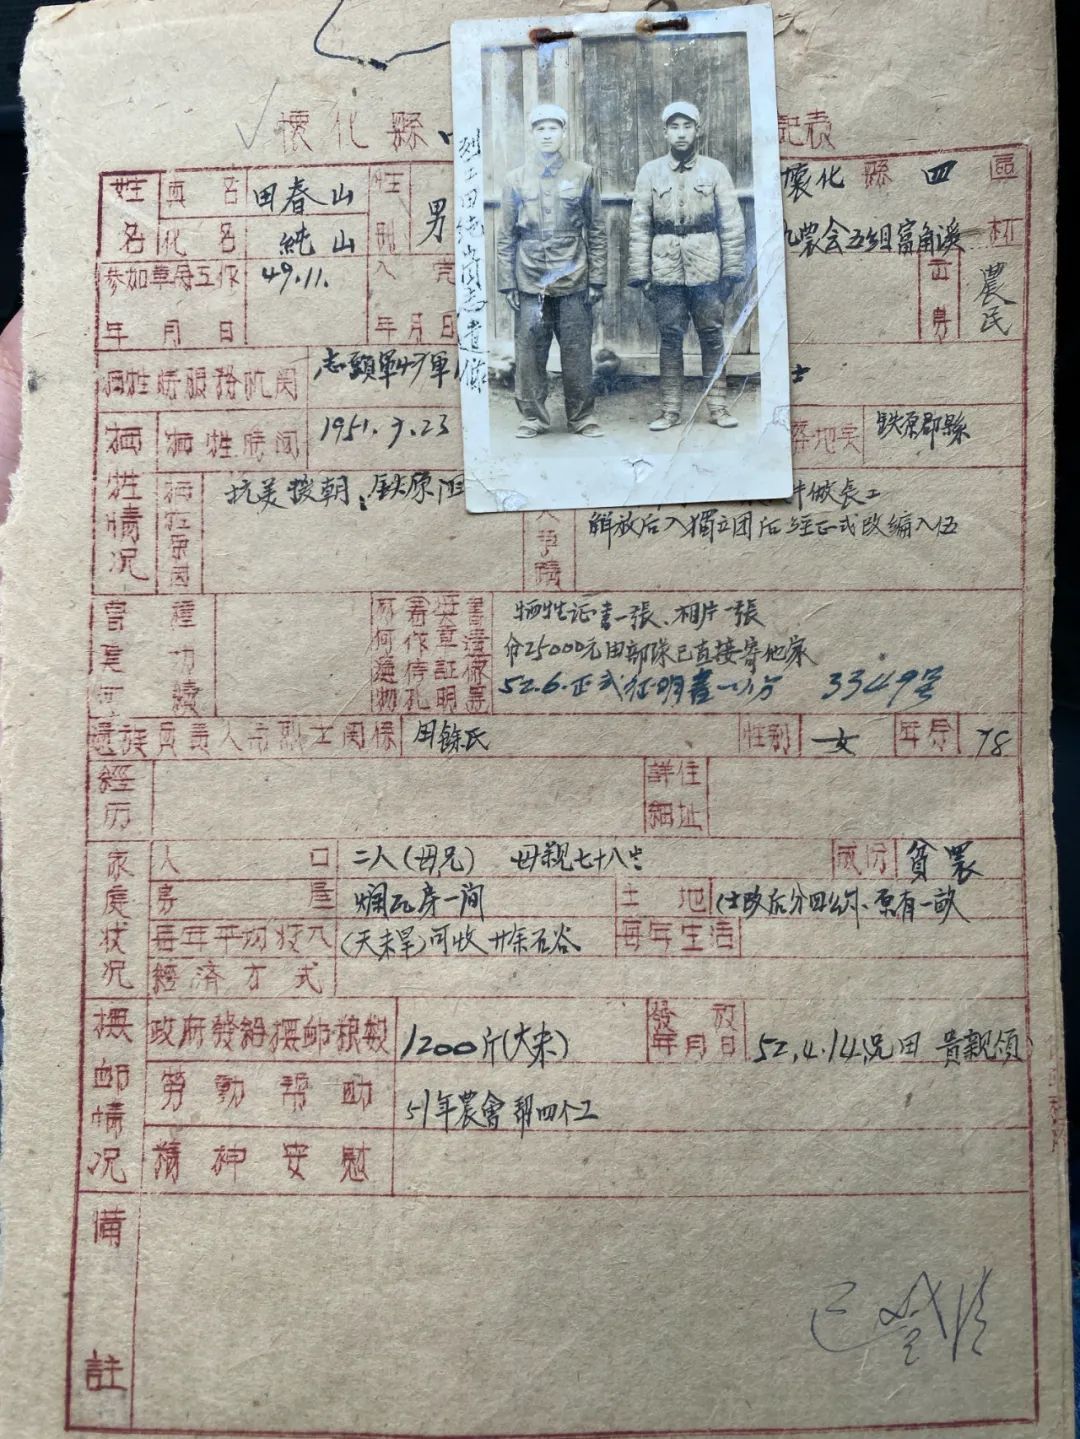 懷化縣
記表
烈士田純山同志遺像
姓名 真名 田春山 性別 男 懷化縣四區
化名 純山 九農会五组富角溪 村
参加革命工作年月日 49.11. 入 年月日 出身 農民
牺牲時服務机関 志願軍47軍 士
牺牲情况 牺牲時间 1951.9.23 地点 鉄原郡縣
牺牲原因 抗美援朝 鉄原
做長工
解放后入獨立团后经正式改编入伍
曾 種
立 功
何 績
牺牲证書一張、相片一張
25000元由部隊已直接寄他家
52.6.正式征明書一分 3349号
遺族負責人與烈士関係 田餘氏 性别 女 年号 78
經历 詳細住址
家庭状况 人口 二人(母兄) 母親七十八岁 成份 貧農
房屋 烂瓦房一间 土地 (土改后分四 原有一畝
每年平均收入 (天未旱)可收廿余石谷 每年生活
經濟方式
撫卹情况 政府發給撫卹粮数 1200斤(大米) 發放年月日 52.4.14 兄田 貴親領
勞動帮助 51年農會帮四个工
精神安慰
備註
已登